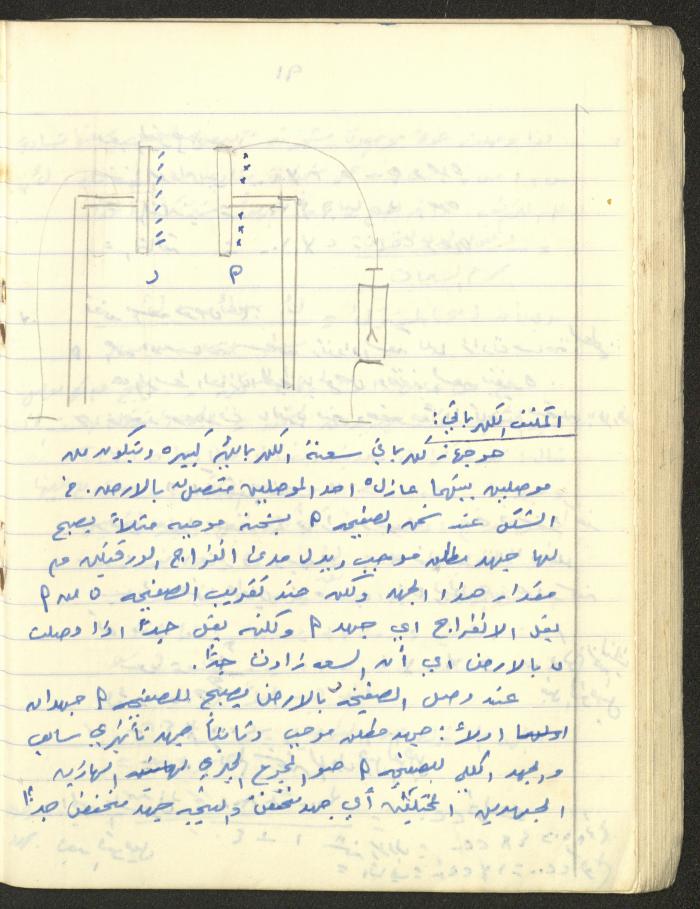 ٩١
د م
المكثف الكهربائي:
هو جهاز كهربائي سعته الكهربائية كبيره ويتكون من
موصلين بينهما عازل احد الموصلين متصل بالارض. في
الشكل عند شحن الصفيحه م بشحنه موجبه مثلاً يصبح
لها جهد مطلق موجب ويدل مدى انفراج الورقتين على
مقدار هذا الجهد ولكن عند تقريب الصفيحه ن من م
يقل الانفراج اي جهد م ولكنه يقل جداً اذا وصلت
ن بالارض اي أن السعه زادت جداً.
عند وصل الصفيحه بالارض يصبح للصفيحه م جهدان
اولاً: جهد مطلق موجب وثانياً جهد تأثيري سالب
والجهد الكلي للصفيحه م هو المجموع الجبري لهاذين
الجهدين المختلفين أي جهد منخفض جداً